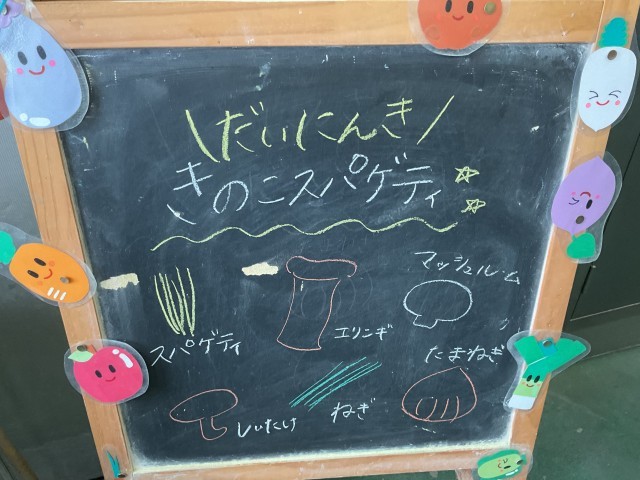 \だいにんき/
きのこスパゲティ
マッシュルーム
エリンギ
スパゲティ
たまねぎ
ねぎ
しいたけ